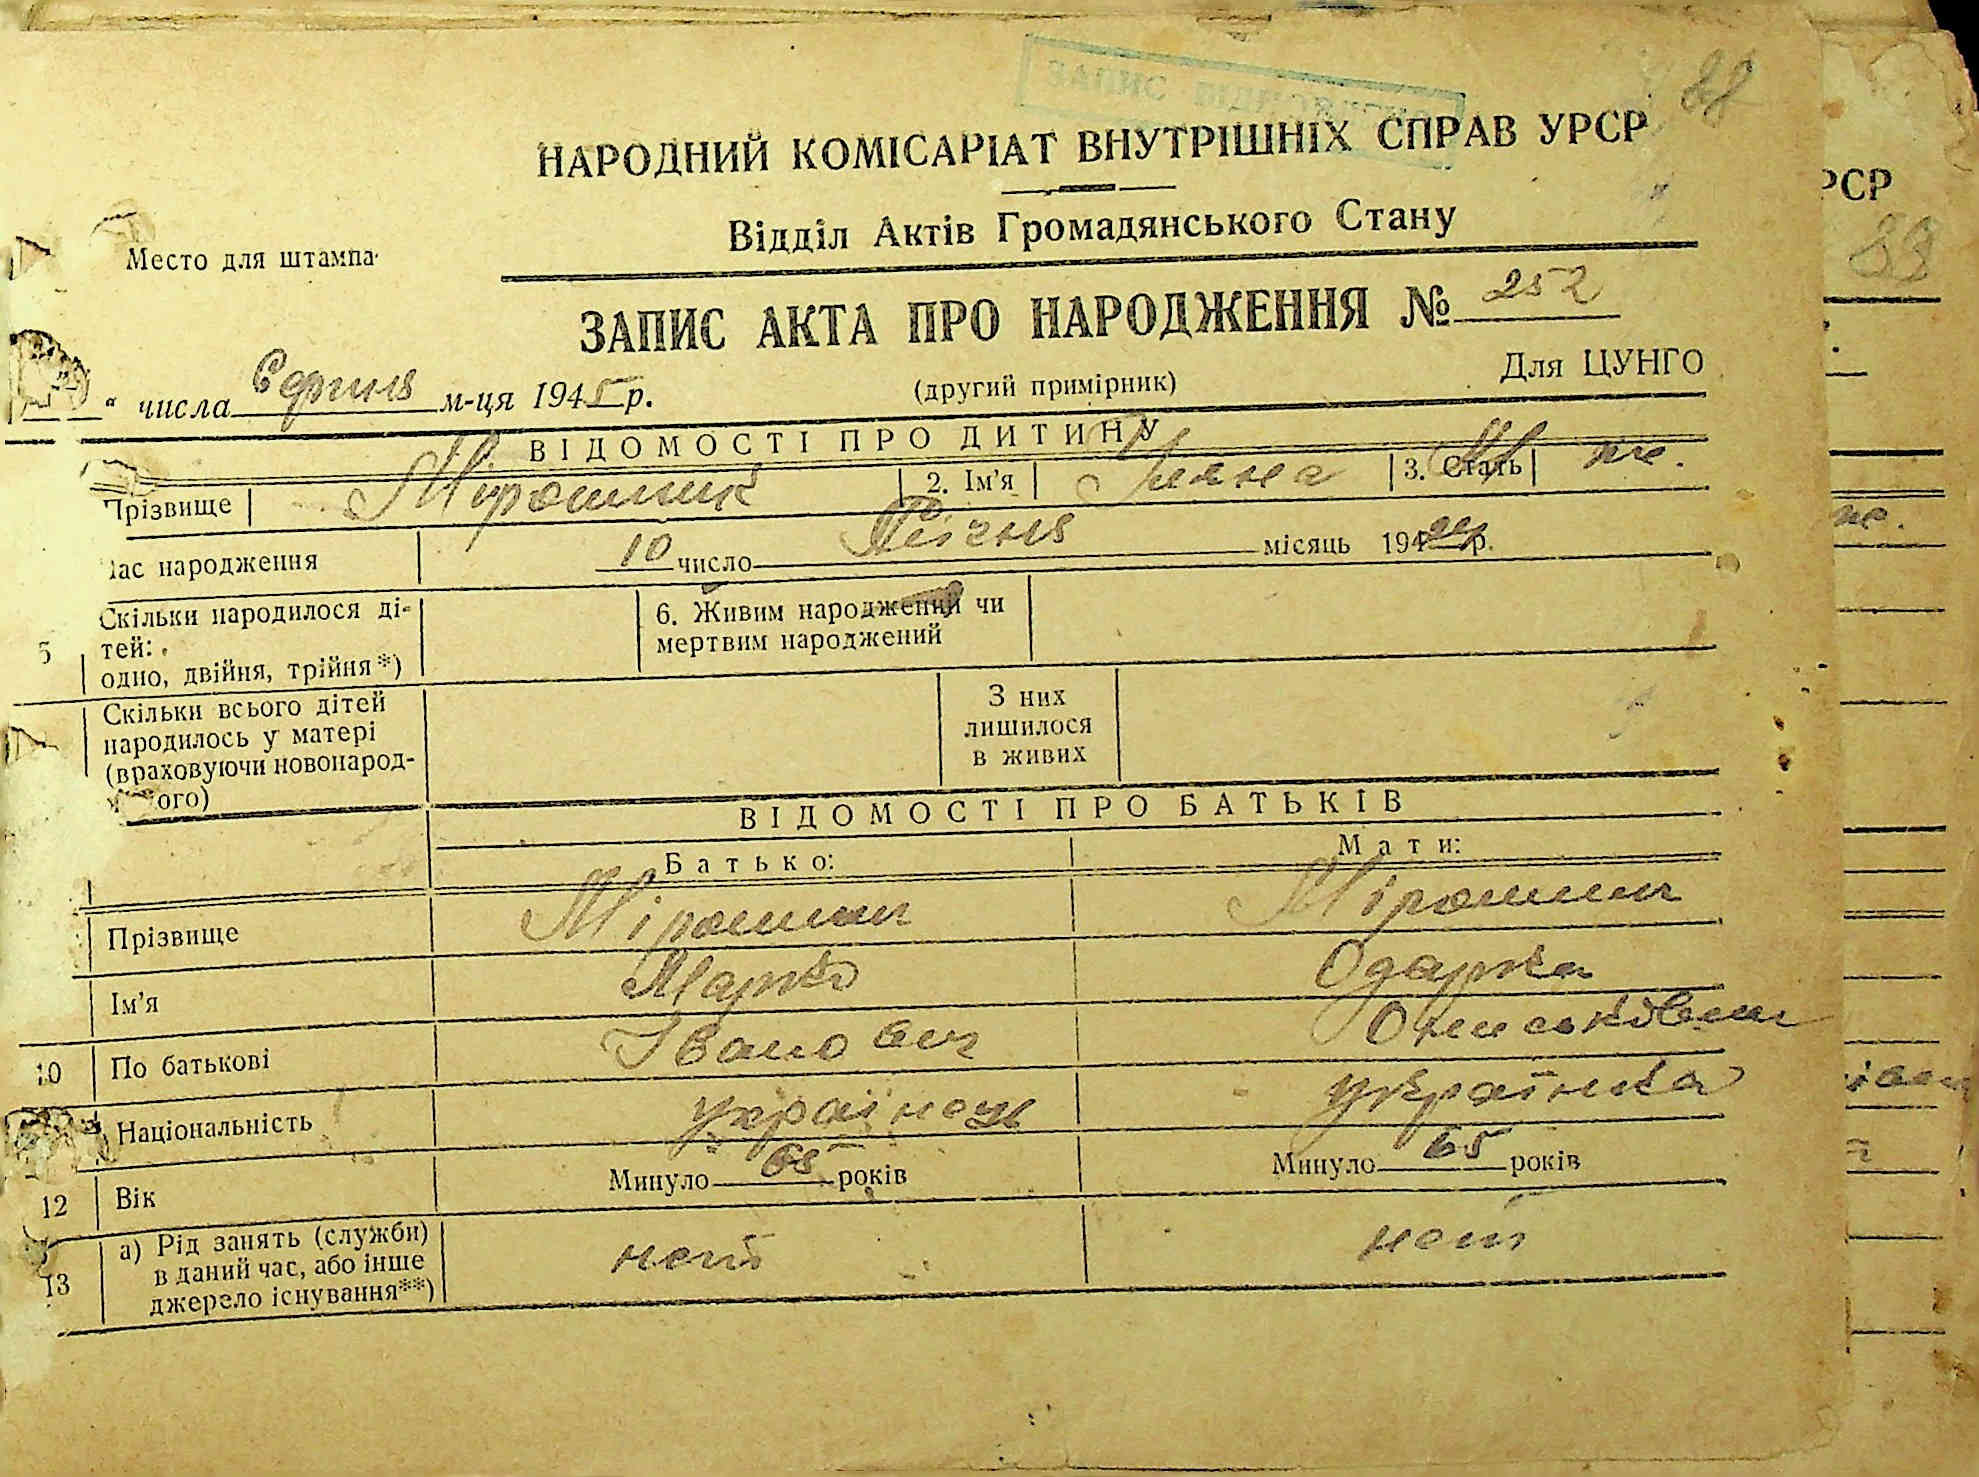 88
НАРОДНИЙ КОМІСАРІАТ ВНУТРІШНІХ СПРАВ УРСР
РСР
Відділ Актів Громадянського Стану
89
Место для штампа
ЗАПИС АКТА ПРО НАРОДЖЕННЯ № 252
Для ЦУНГО
(другий примірник)
" числа Серпня м-ця 1945 р.
ВІДОМОСТІ ПРО ДИТИНУ
Прізвище Мірошник 2. Ім'я Уляна 3. Стать ж.
час народження 10 число Січня місяць 194 р.
5 Скільки народилося ді-
тей:
одно, двійня, трійня*)
6. Живим народжений чи
мертвим народжений
Скільки всього дітей
народилось у матері
(враховуючи новонарод-
ого)
З них
лишилося
в живих
ВІДОМОСТІ ПРО БАТЬКІВ
Батько: Мати:
Прізвище Мірошник Мірошник
Ім'я Марко Одарка
10 По батькові Іванович
Національність українець українка
12 Вік Минуло 65 років Минуло 65 років
13 а) Рід занять (служби)
в даний час, або інше
джерело існування**)
нет нет